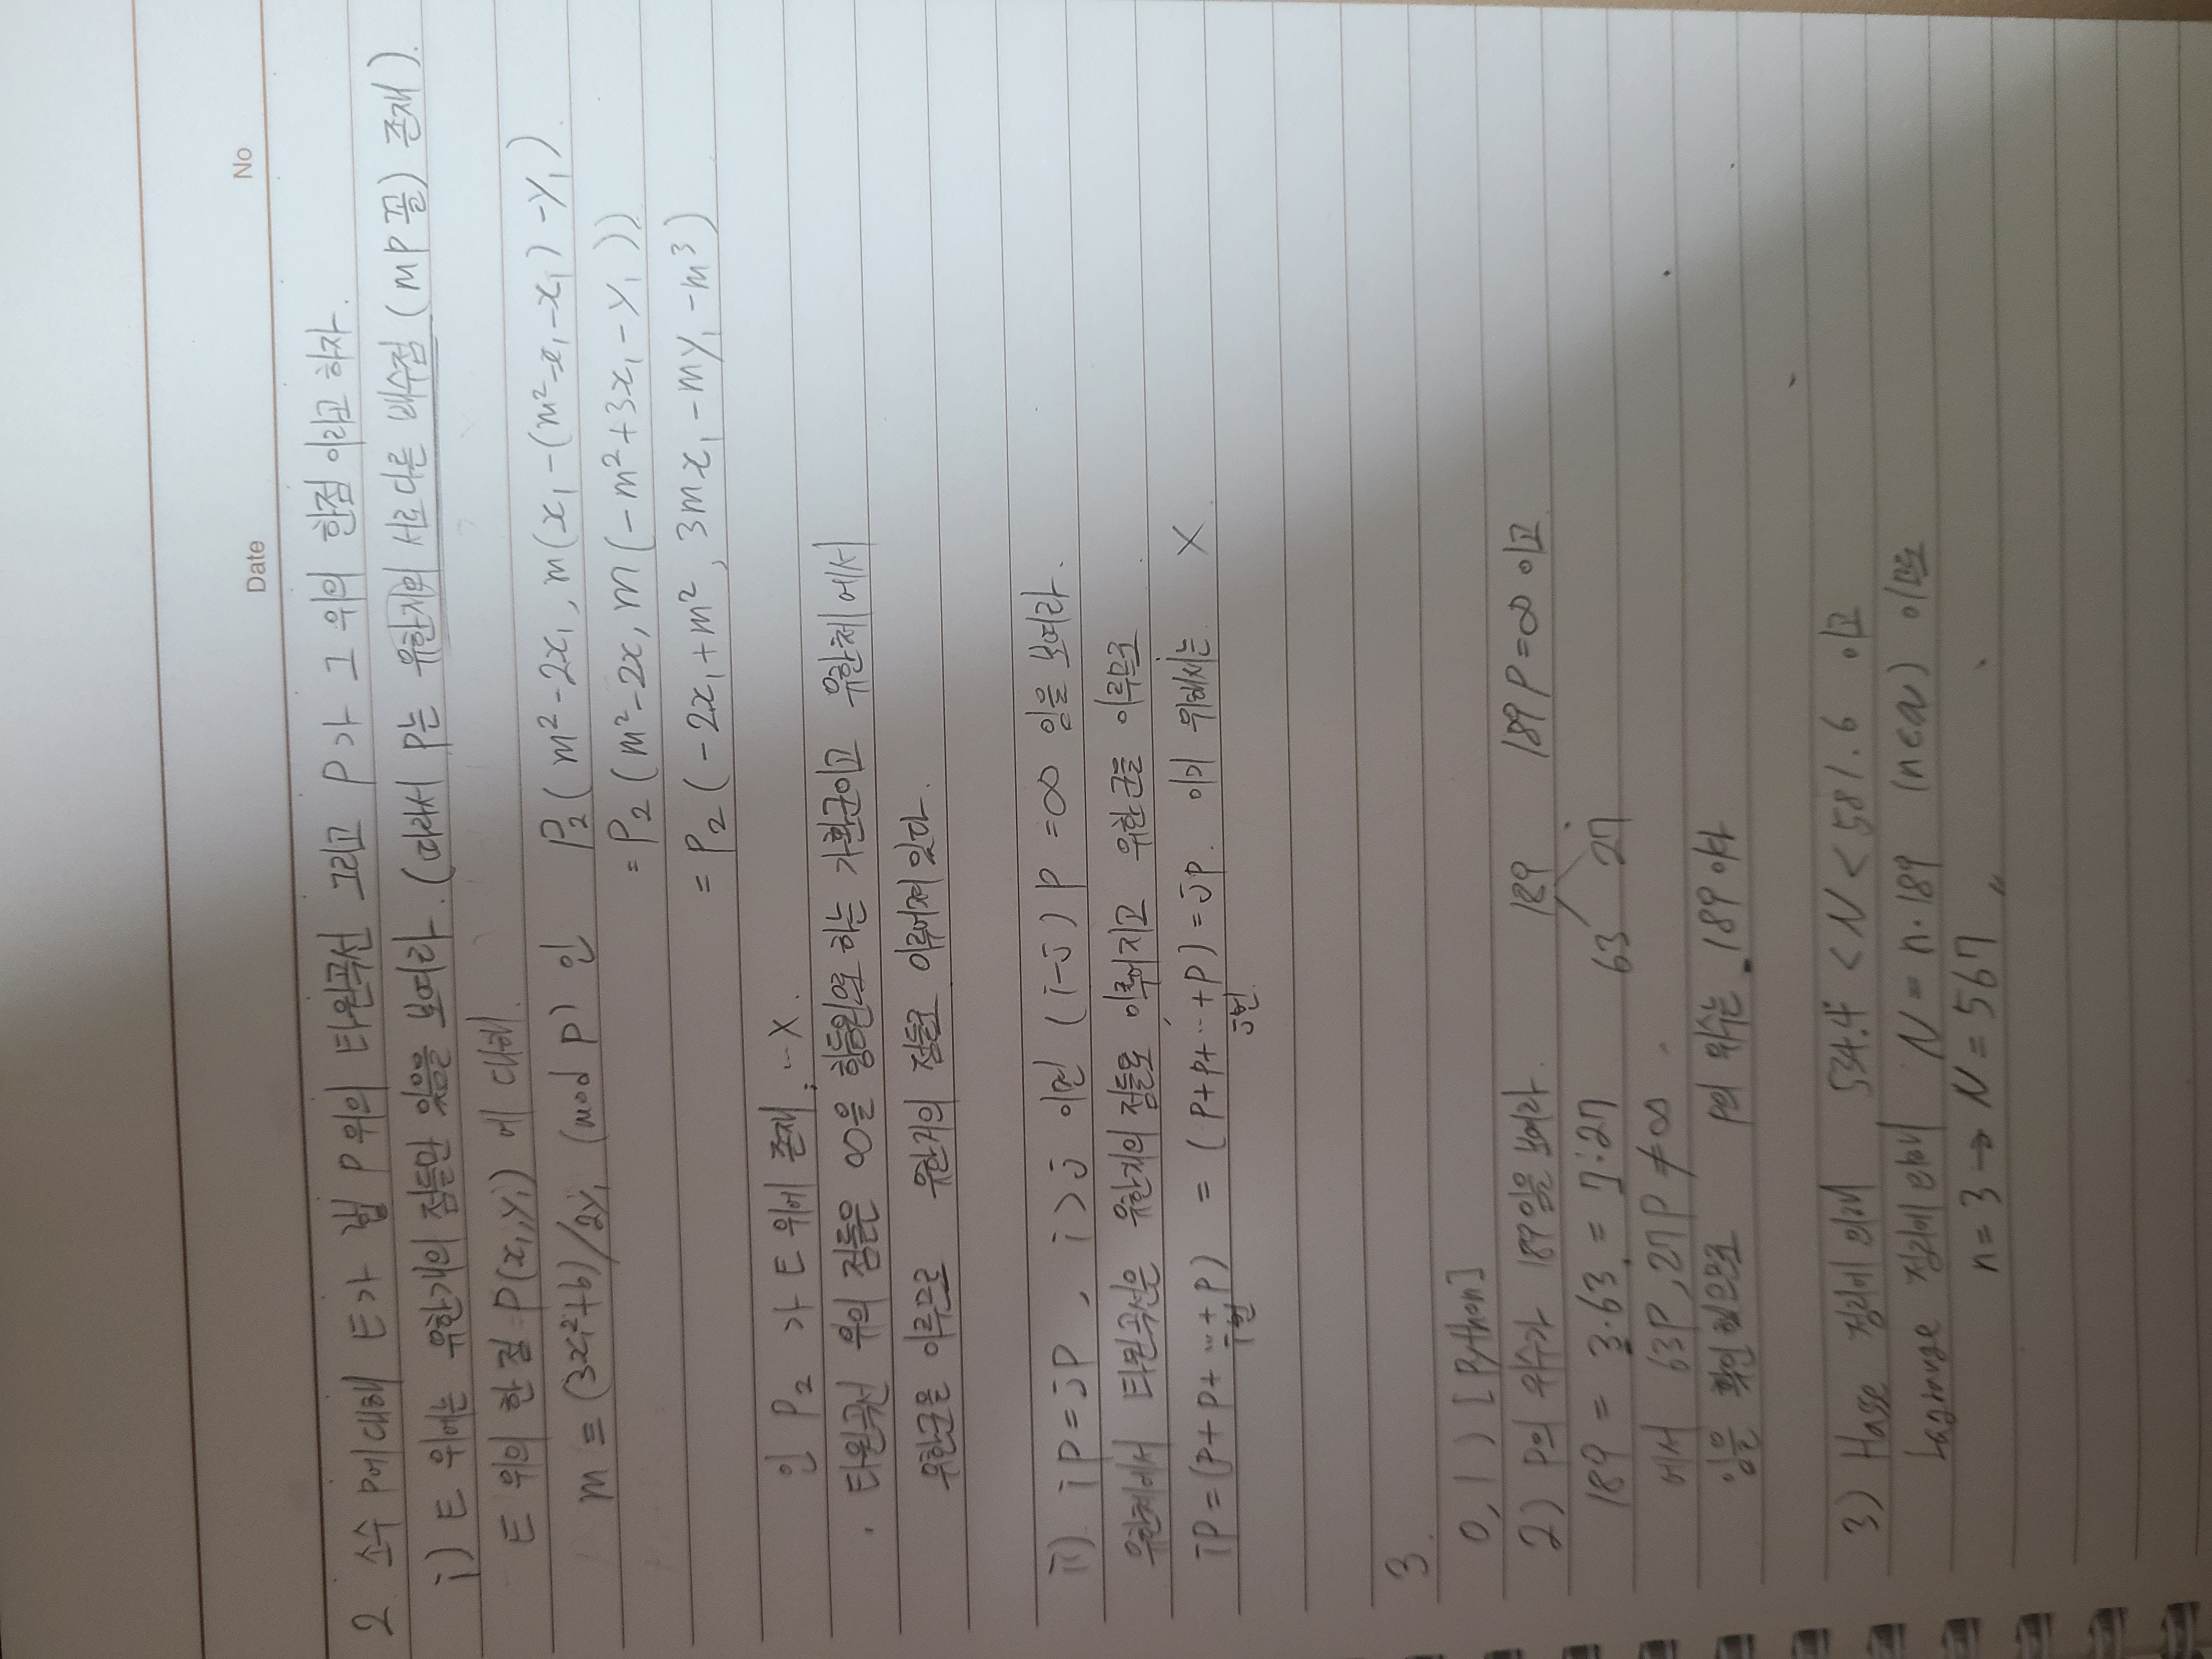 Date No
2. 소수 p에 대해 E가 법 p 위의 타원곡선 그리고 P가 그 위의 한점 이라고 하자.
i) E 위에는 유한개의 점들만 있음을 보여라. (따라서 P는 유한개의 서로 다른 배수점 (mP 꼴) 존재).
E 위의 한 점 P(x₁,y₁) 에 대해.
m ≡ (3x₁²+b)/2y₁ (mod p) 인 P₂(m²-2x₁, m(x₁-(m²-x₁-x₁)-y₁)
= P₂(m²-2x, m(-m²+3x₁-y₁))
= P₂(-2x₁+m², 3mx₁-my₁-m³)
인 P₂ 가 E 위에 존재. … X.
· 타원곡선 위의 점들은 ∞을 항등원으로 하는 가환군이고 유한체에서
유한군을 이루므로 유한개의 점들로 이루어져 있다.
ii) iP=jP, i>j 이면 (i-j)P=∞ 임을 보여라.
유한체에서 타원곡선은 유한개의 점들로 이루어지고 유한군을 이루므로
iP=(P+P+…+P) = (P+P+…+P)=jP. 이기 위해서는 X
i번 j번
3.
0,1) [Python]
2) P의 위수가 189임을 보여라. 189 189P=∞ 이고
189 = 3·63 = 7·27 63 27
에서 63P, 27P≠∞
임을 확인했으므로 P의 위수는 189이다
3) Hasse 정리에 의해 534.4 < N < 581.6 이고
Lagrange 정리에 의해 N = n·189 (n∈ℕ) 이므로
n=3 → N=567 〃